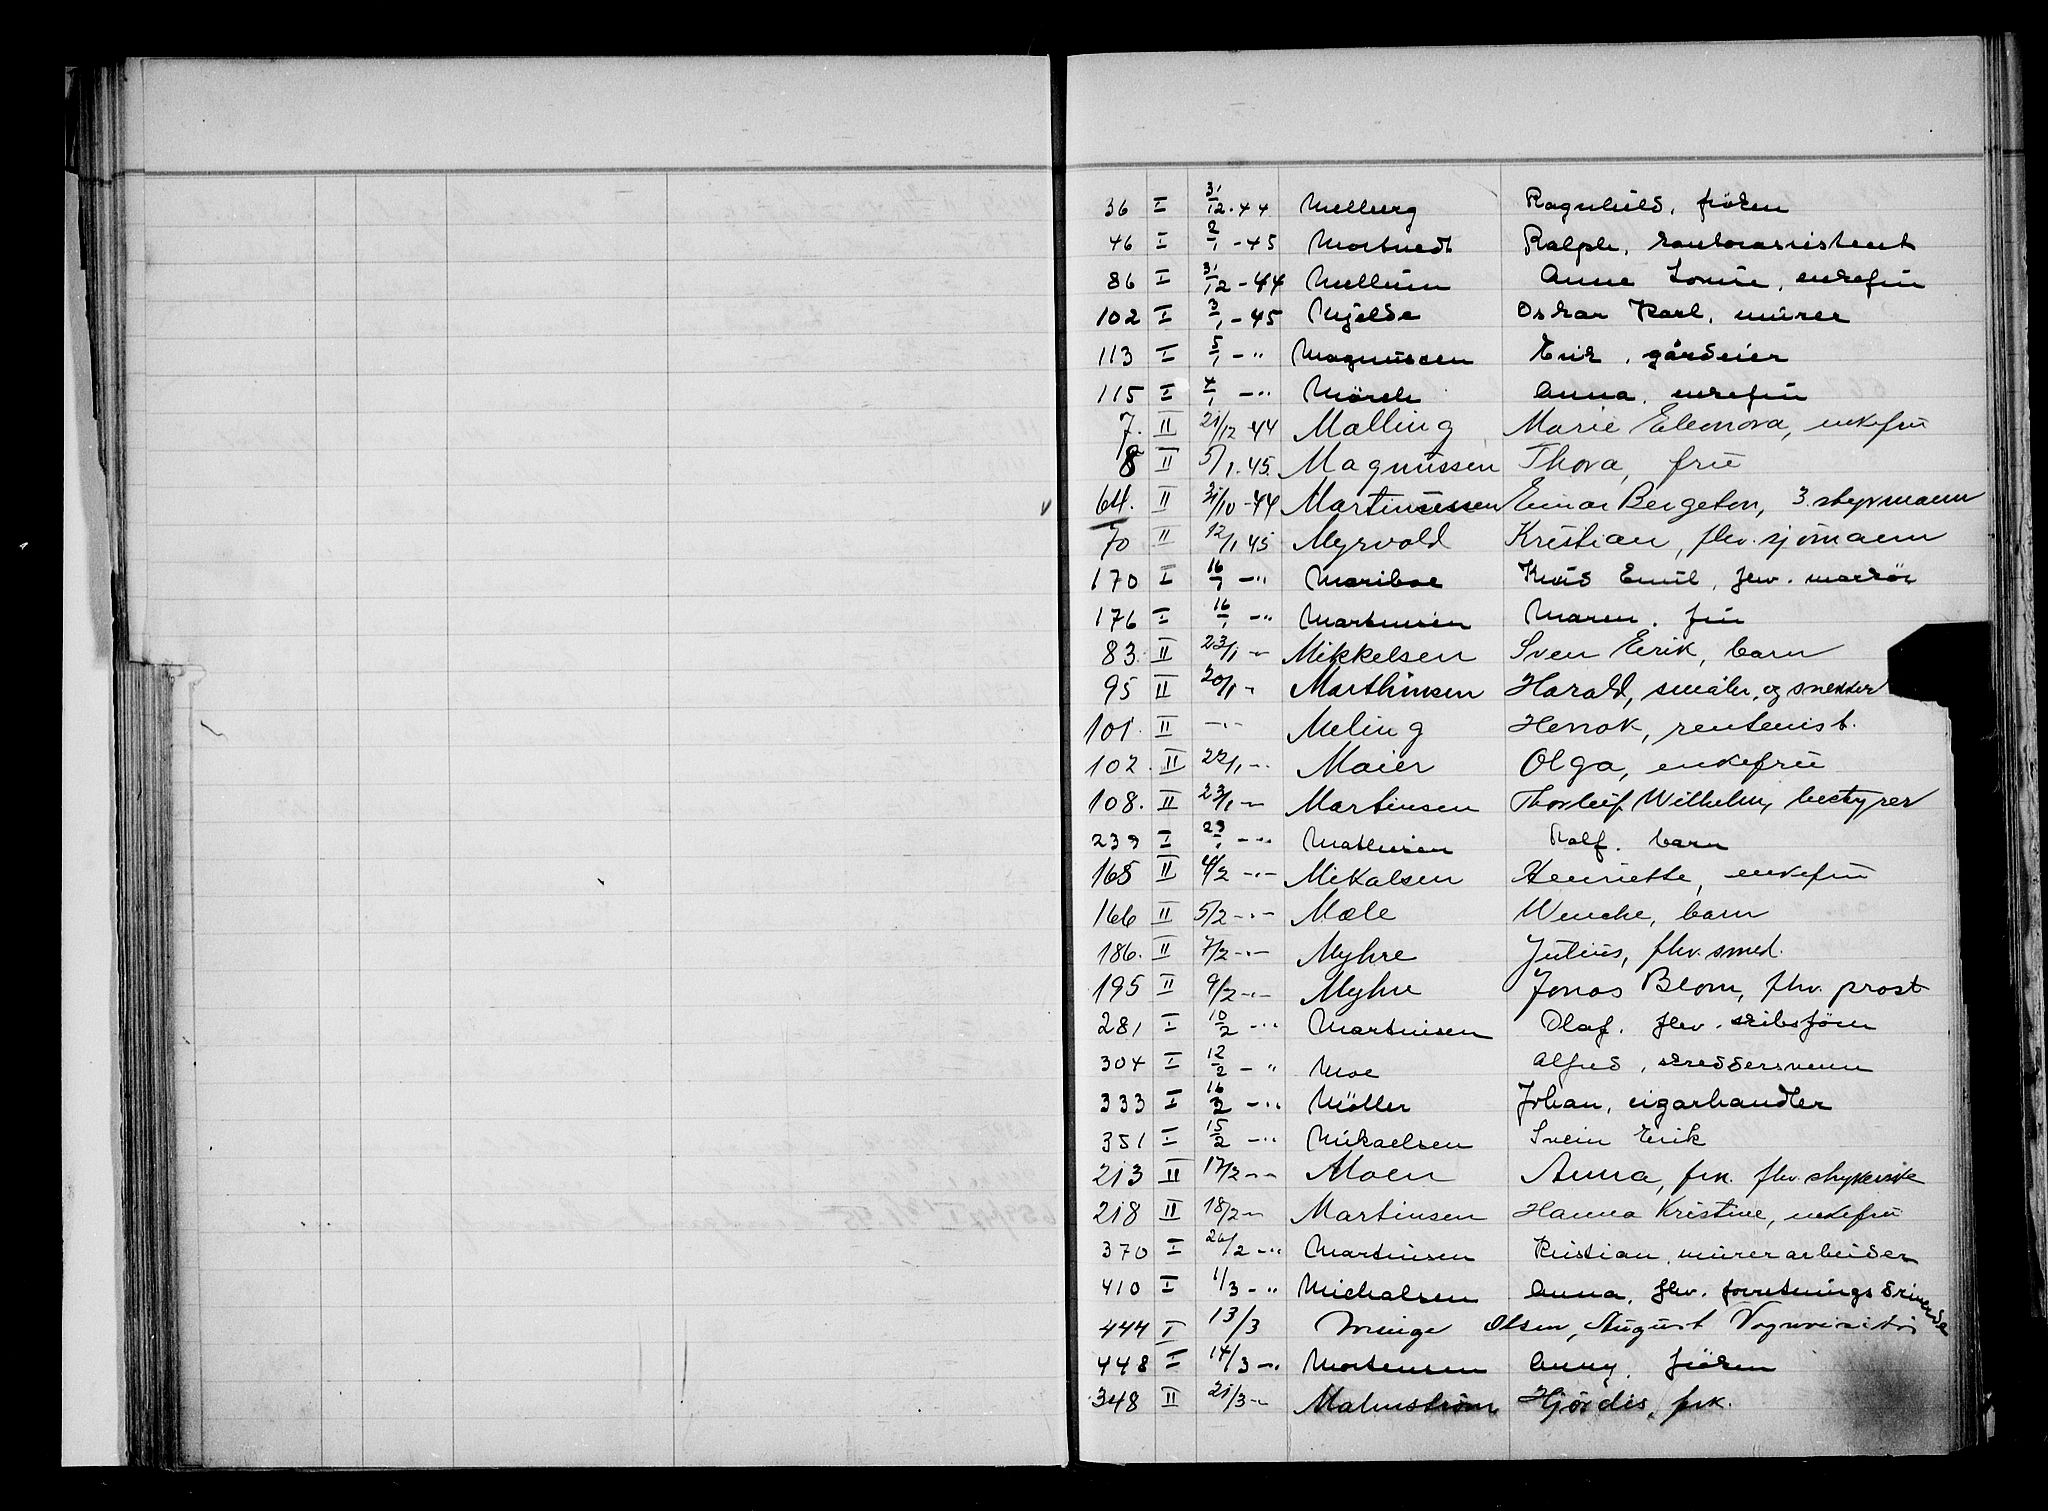 36 I 31/12-44 Melberg Ragnhild, frøken
46 I 2/1-45 Mortvedt Ralph, kontorassistent
86 I 31/12-44 Mellum Anne Lovise, enkefru
102 I 3/1-45 Mjelde Oskar Karl, murer
113 I 5/1-" Magnussen Erik, gårdeier
115 I 4/1-" Mørch Anna, enkefru
7. II 21/12-44 Malling Marie Eleonora, enkefru
8 II 5/1.45. Magnussen Thora, fru
64. II 31/10-44 Martinussen Einar Bergeton, 3. styrmann
70 II 12/1 45 Myrvold Kristian, fhv. sjømann
170 I 16/1-" Mariboe Knud Emil, fhv. markør
176 I 16/1-" Martinsen Maren, fru
83 II 23/1-" Mikkelsen Sven Erik, barn
95 II 20/1-" Marthinsen Harald, småbr. og snekker
101 II -"- Meling Henok, rentenist.
102. II 22/1-" Maier Olga, enkefru
108. II 23/1-" Martinsen Thorleif Wilhelm, bestyrer
239 I 29/1-" Mathisen Rolf, barn
165 II 4/2-"- Mikalsen Henriette, enkefru
166 II 5/2-"- Mæle Wenche, barn
186. II 7/2-"- Myhre Julius, fhv. smed.
195 II 9/2-"- Myhre Jonas Blom, fhv. prost
281 I 10/2-" Martinsen Olaf, fhv. skibsfører
304 I 12/2-" Moe Alfred, skreddersvenn
333 I 16/2-" Møller Johan, cigarhandler
351 I 15/2-" Mikaelsen Svein Erik
213 II 17/2-" Moen Anna, frk. fhv. strykerske
218 II 18/2-" Martinsen Hanna Kristine, enkefru
370 I 26/2-" Martinsen Kristian, murerarbeider
410 I 1/3-" Michalsen Anna, fhv. forretningsdrivende
444 I 13/3 Olsen, August Vognvisitør
448 I 14/3-" Mortensen Anny, frøken
348 II 21/3-" Malmstrøm Hjørdis, frk.